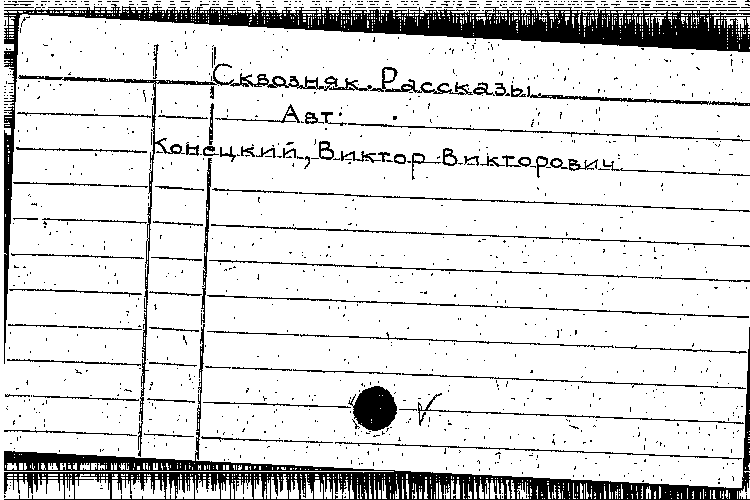 Сквозняк. Рассказы.
Авт:
Конецкий, Виктор Викторович